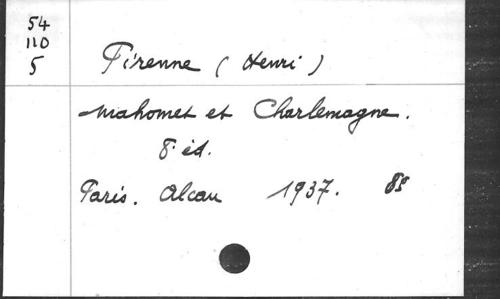 54
110
5
Pirenne (Henri)
Mahomet et Charlemagne.
8° éd.
Paris. Alcan 1937. 8°